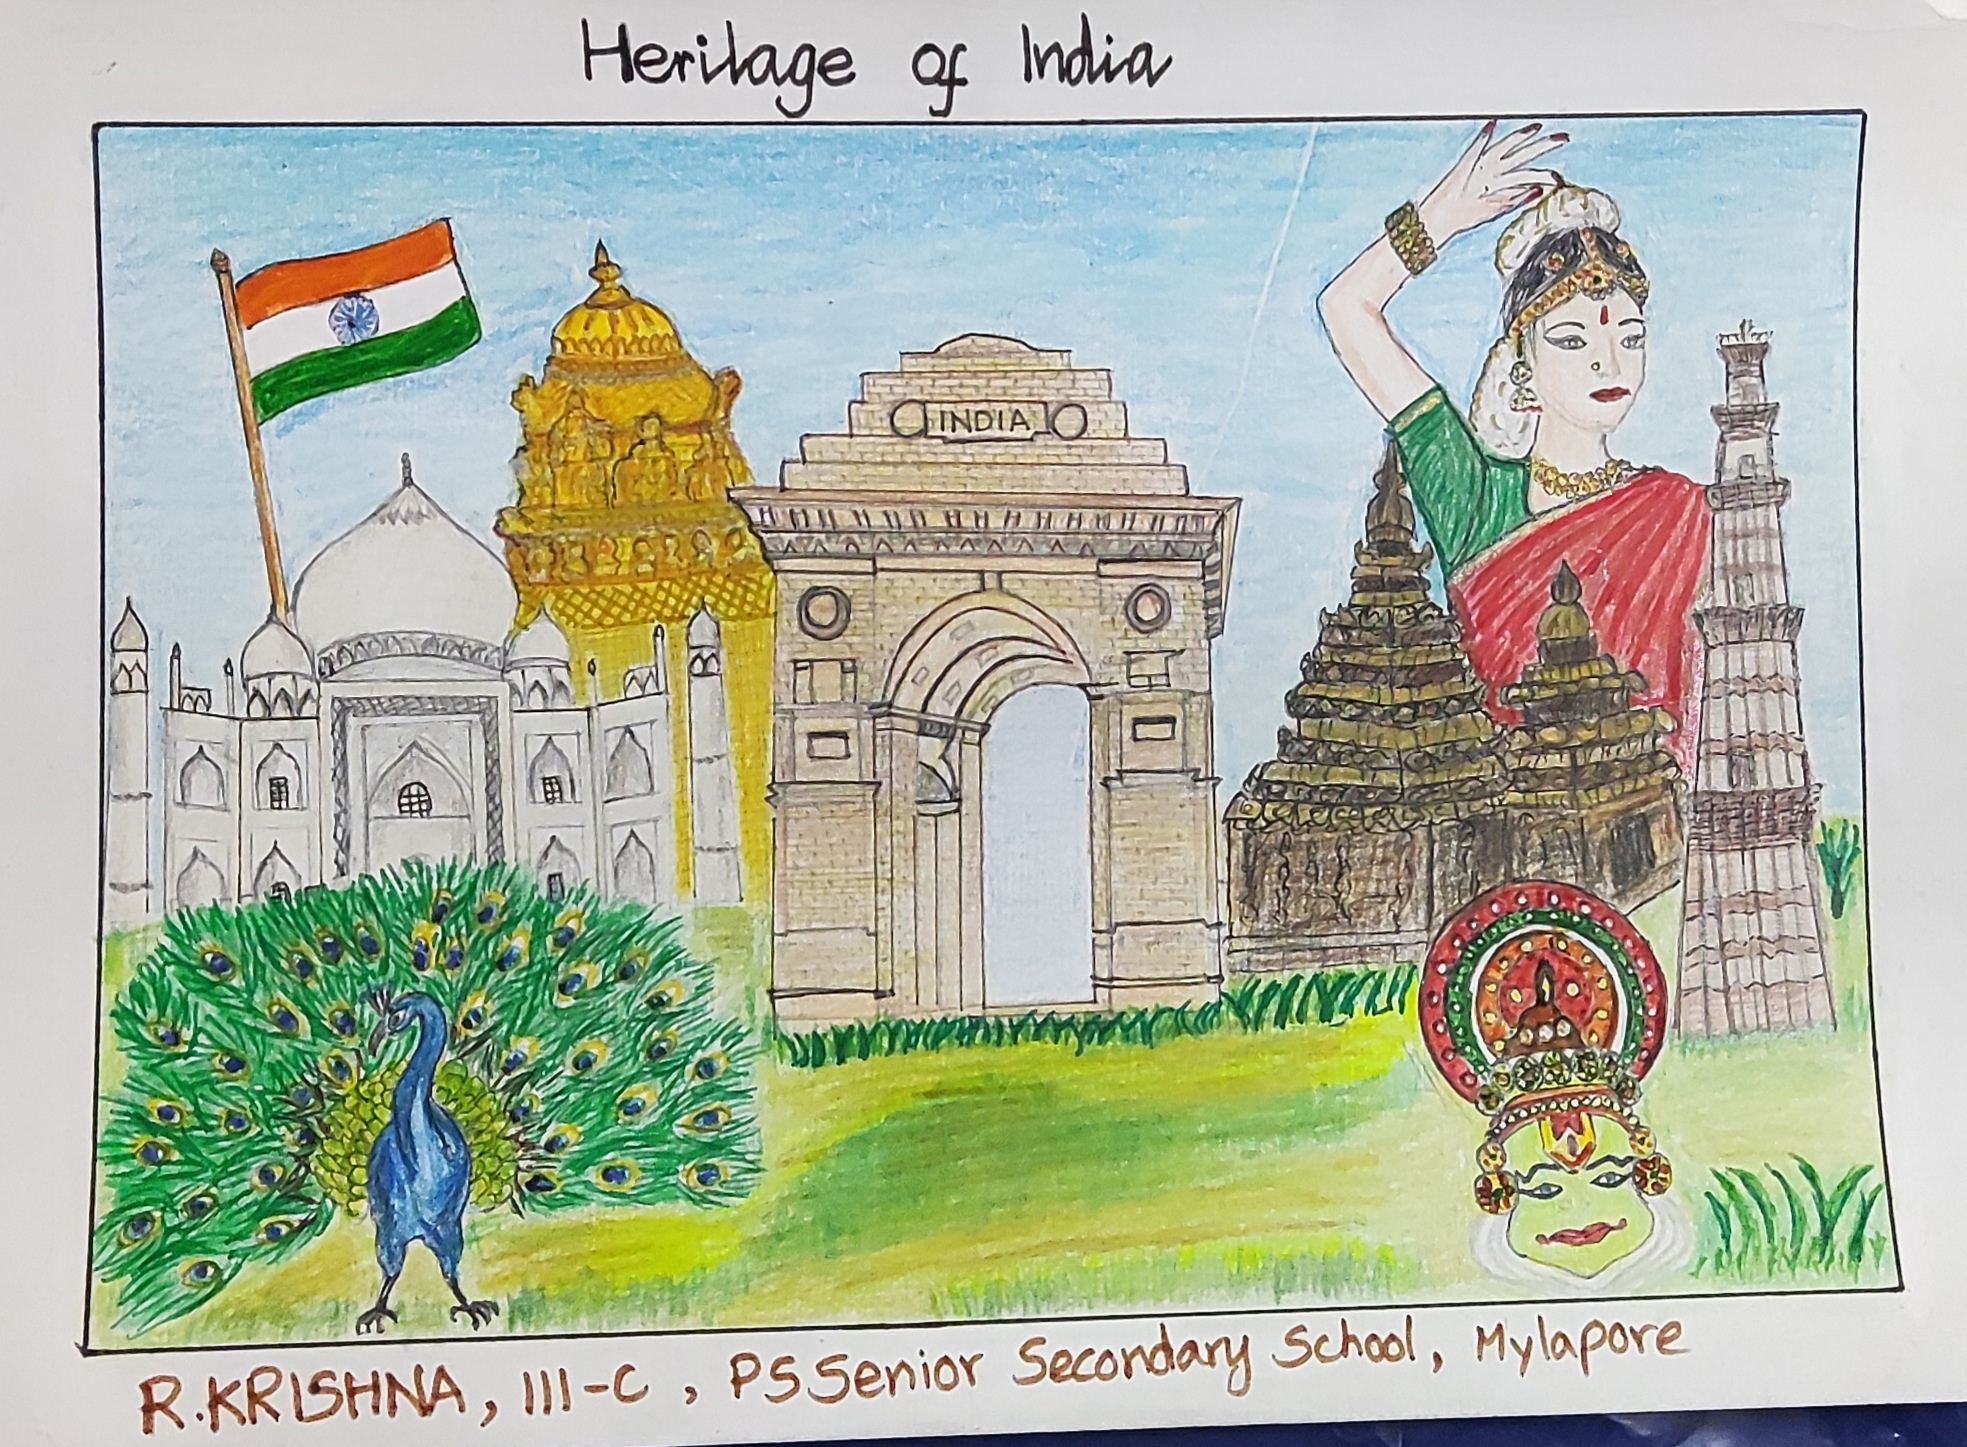 Heritage of India
INDIA
R.KRISHNA, III-C, PS Senior Secondary School, Mylapore